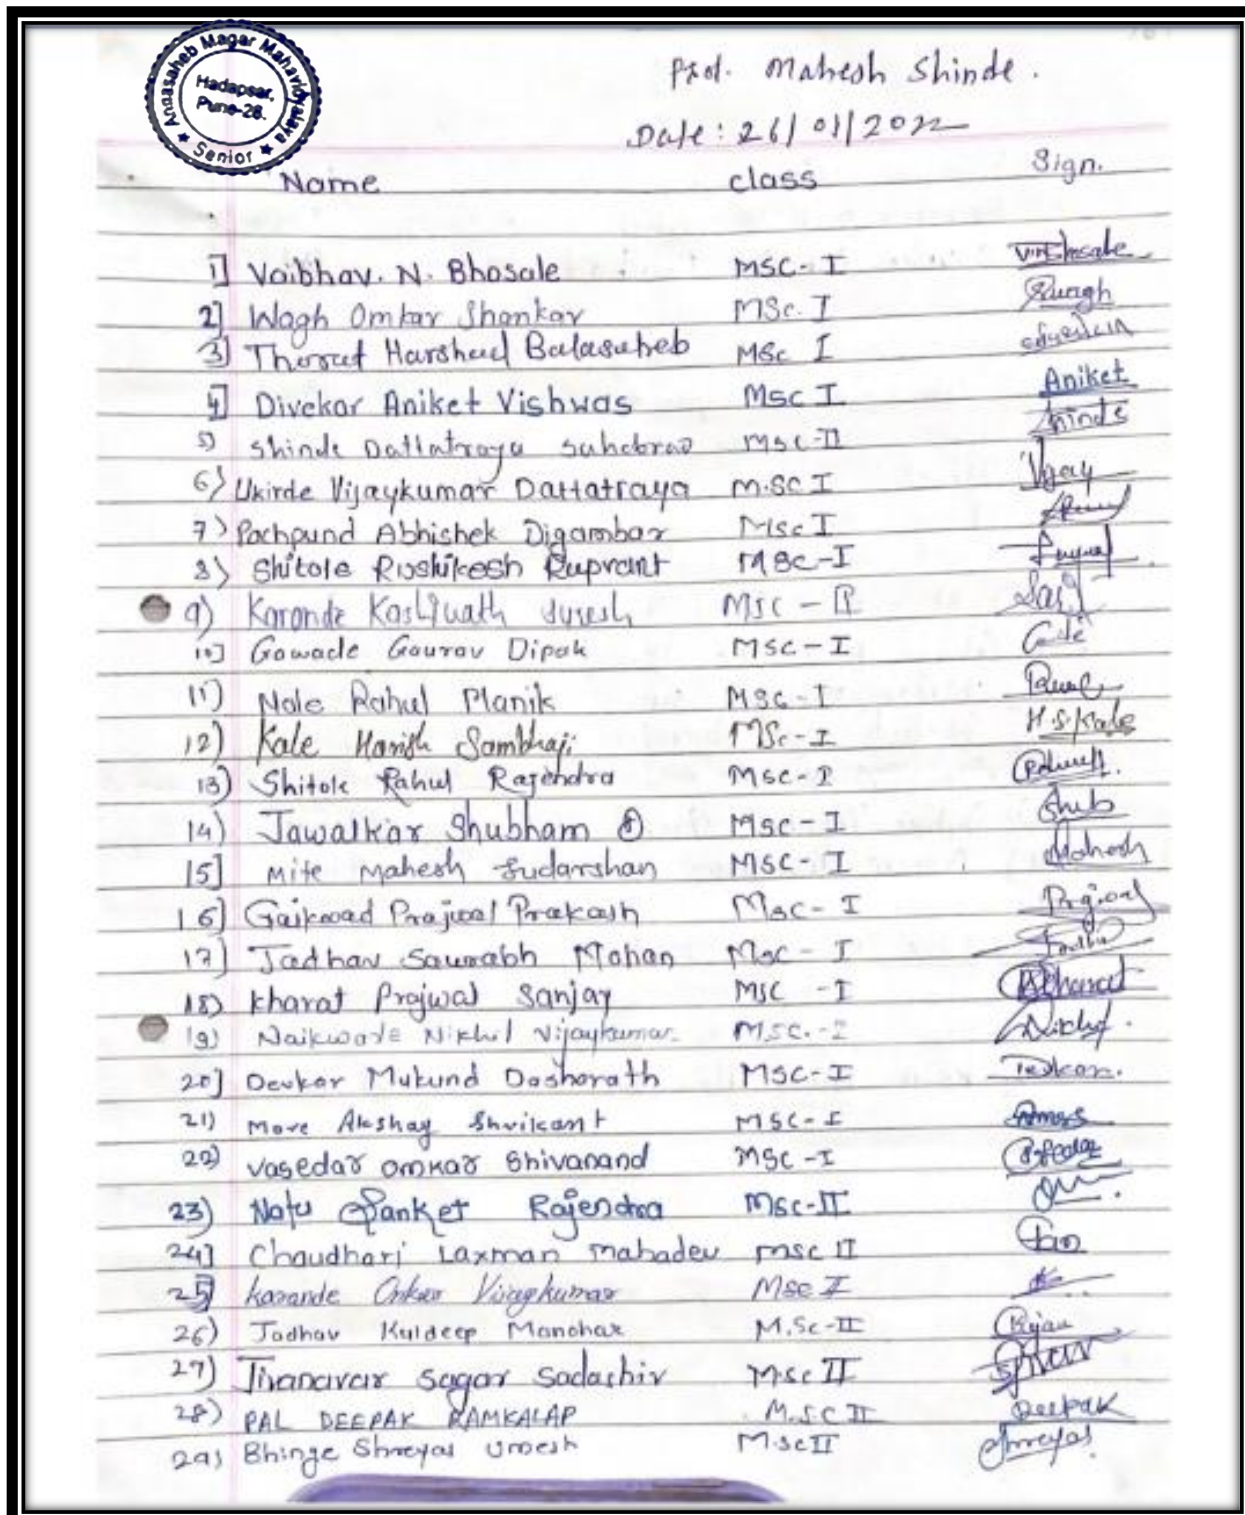 Annasaheb Magar Mahavidyalaya
Hadapsar,
Pune-28.
★ Senior ★
Prof. Mahesh Shinde.
Date: 26/01/2022
Name class Sign.
1] Vaibhav. N. Bhosale MSC-I
2] Wagh Omkar Shankar MSc. I
3] Thorat Harshad Balasaheb MSc I
4] Divekar Aniket Vishwas MSc I Aniket
5) Shinde Dattatraya Sahebrao MSc-II Shinde
6) Ukirde Vijaykumar Dattatraya M.SC I Vijay
7) Pachpund Abhishek Digambar Msc I
8) Shitole Rushikesh Ruprant MSc-I
9) Karande Kashinath Suresh MSC -
10] Gawade Gaurav Dipak MSC-I
11) Nale Rahul Manik MSC-I
12) Kale Harish Sambhaji MSc-I H.S.Kale
13) Shitole Rahul Rajendra MSC-I
14) Jawalkar Shubham MSC-I Shub
15] Mite Mahesh Sudarshan MSC-I Mahesh
16] Gaikwad Prajwal Prakash MSC-I Prajwal
17) Jadhav Saurabh Mohan MSC-I
18) Kharat Prajwal Sanjay MSC-I Kharat
19) Naikwade Nikhil Vijaykumar MSC.-I Nikhil.
20] Devkar Mukund Dasharath MSC-I Devkar.
21) More Akshay Shrikant MSC-I
22) Vasedar Omkar Shivanand MSC-I
23) Natu Sanket Rajendra MSC-II
24] Chaudhari Laxman Mahadev MSC II
25] Karande Onkar Vijaykumar MSc II
26) Jadhav Kuldeep Manohar M.Sc-II
27) Jivanavar Sagar Sadashiv M.sc II
28) PAL DEEPAK RAMKALAP M.SC II Deepak
29) Bhinge Shreyas Umesh M.sc II Shreyas.